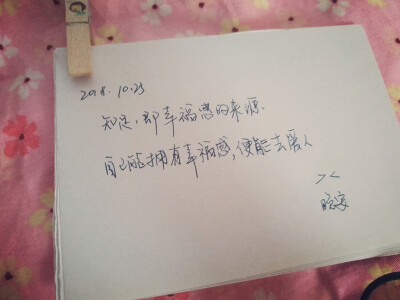 2018.10.25
知足,即幸福感的来源.
自己能拥有幸福感,便能去爱人
><
晚安